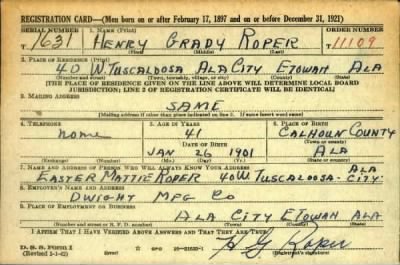 REGISTRATION CARD—(Men born on or after February 17, 1897 and on or before December 31, 1921)
SERIAL NUMBER 1. NAME (Print) ORDER NUMBER
T 1631 HENRY GRADY ROPER 11109
(First) (Middle) (Last)
2. PLACE OF RESIDENCE (Print)
40 W. TUSCALOOSA ALA CITY ETOWAH ALA
(Number and street) (Town, township, village, or city) (County) (State)
[THE PLACE OF RESIDENCE GIVEN ON THE LINE ABOVE WILL DETERMINE LOCAL BOARD
JURISDICTION; LINE 2 OF REGISTRATION CERTIFICATE WILL BE IDENTICAL]
3. MAILING ADDRESS
SAME
[Mailing address if other than place indicated on line 2. If same insert word same]
4. TELEPHONE 5. AGE IN YEARS 6. PLACE OF BIRTH
none 41 CALHOUN COUNTY
DATE OF BIRTH (Town or county)
JAN 26 1901 ALA
(Exchange) (Number) (Mo.) (Day) (Yr.) (State or country)
7. NAME AND ADDRESS OF PERSON WHO WILL ALWAYS KNOW YOUR ADDRESS ALA
EASTER MATTIE ROPER 40 W. TUSCALOOSA- CITY-
8. EMPLOYER'S NAME AND ADDRESS
DWIGHT MFG CO
9. PLACE OF EMPLOYMENT OR BUSINESS
ALA CITY ETOWAH ALA
(Number and street or R. F. D. number) (Town) (County) (State)
I AFFIRM THAT I HAVE VERIFIED ABOVE ANSWERS AND THAT THEY ARE TRUE.
D. S. S. Form 1
(Revised 1-1-42) GPO 16—21630-1 H G Roper